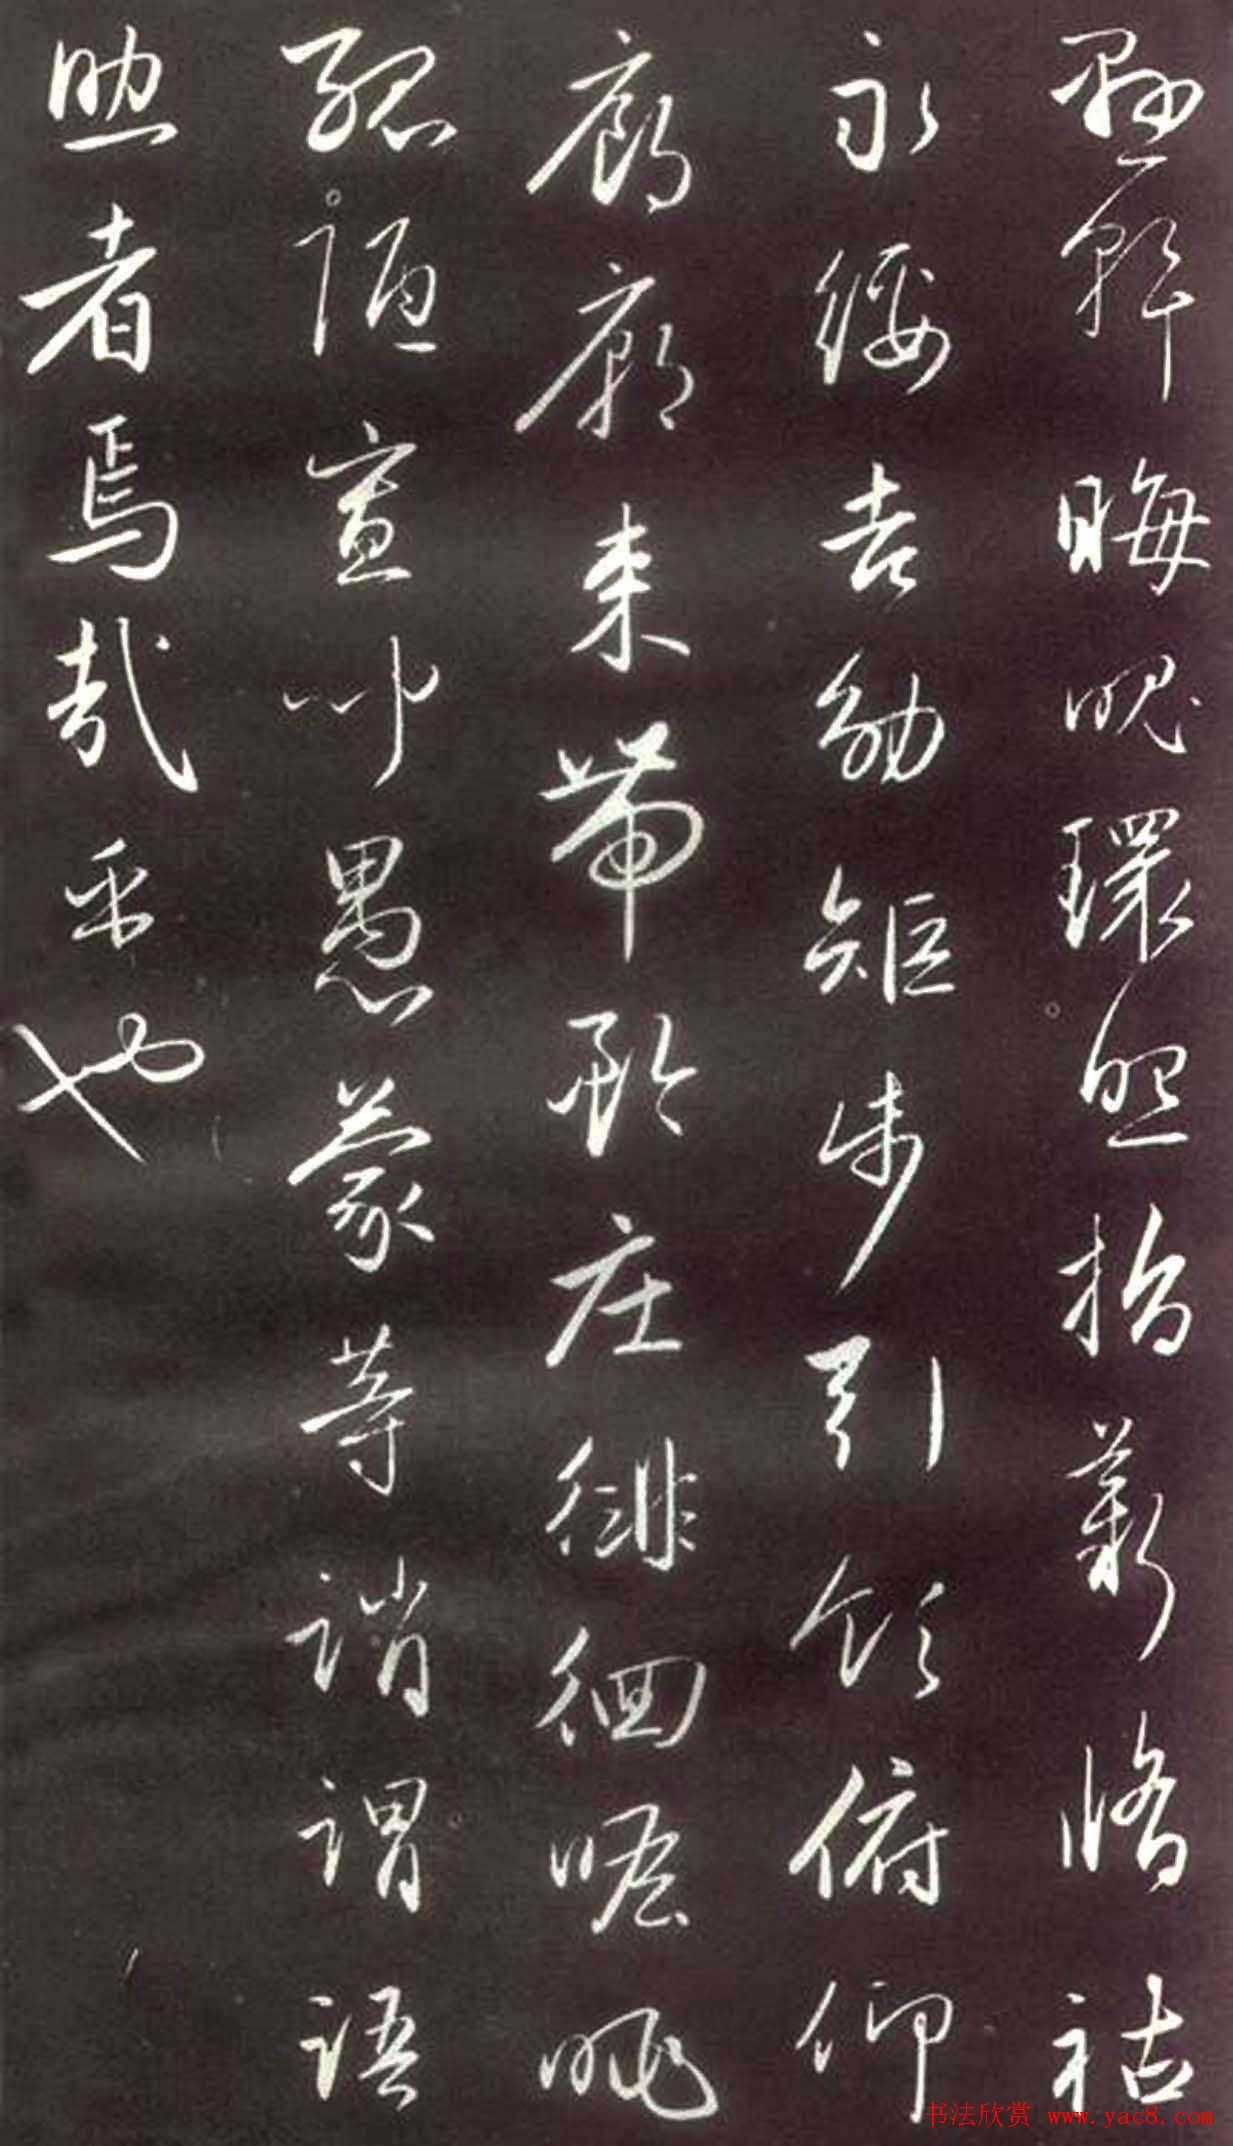 懸斡晦魄環照指薪脩祜
永綏吉劭矩步引領俯仰
廊廟束帶矜庄徘徊瞻眺
孤陋寡聞愚蒙等誚謂語
助者焉哉乎也
书法欣赏 www.yac8.com